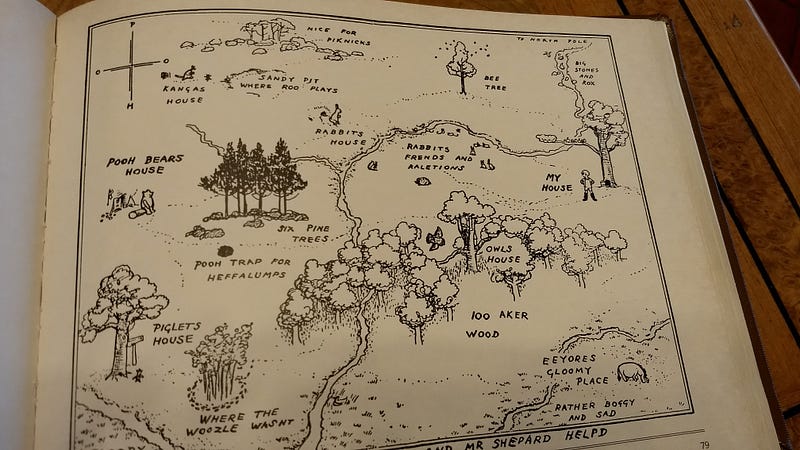 P
O
O
H
NICE FOR
PIKNICKS
TO NORTH POLE
BIG
STONES
AND
ROX
KANGAS
HOUSE
SANDY PIT
WHERE ROO PLAYS
BEE
TREE
RABBITS
HOUSE
RABBITS
FRENDS AND
RALETIONS
POOH BEARS
HOUSE
MY
HOUSE
SIX PINE
TREES
POOH TRAP FOR
HEFFALUMPS
OWLS
HOUSE
100 AKER
WOOD
PIGLETS
HOUSE
EEYORES
GLOOMY
PLACE
WHERE THE
WOOZLE WASNT
RATHER BOGGY
AND SAD
AND MR SHEPARD HELPD
79